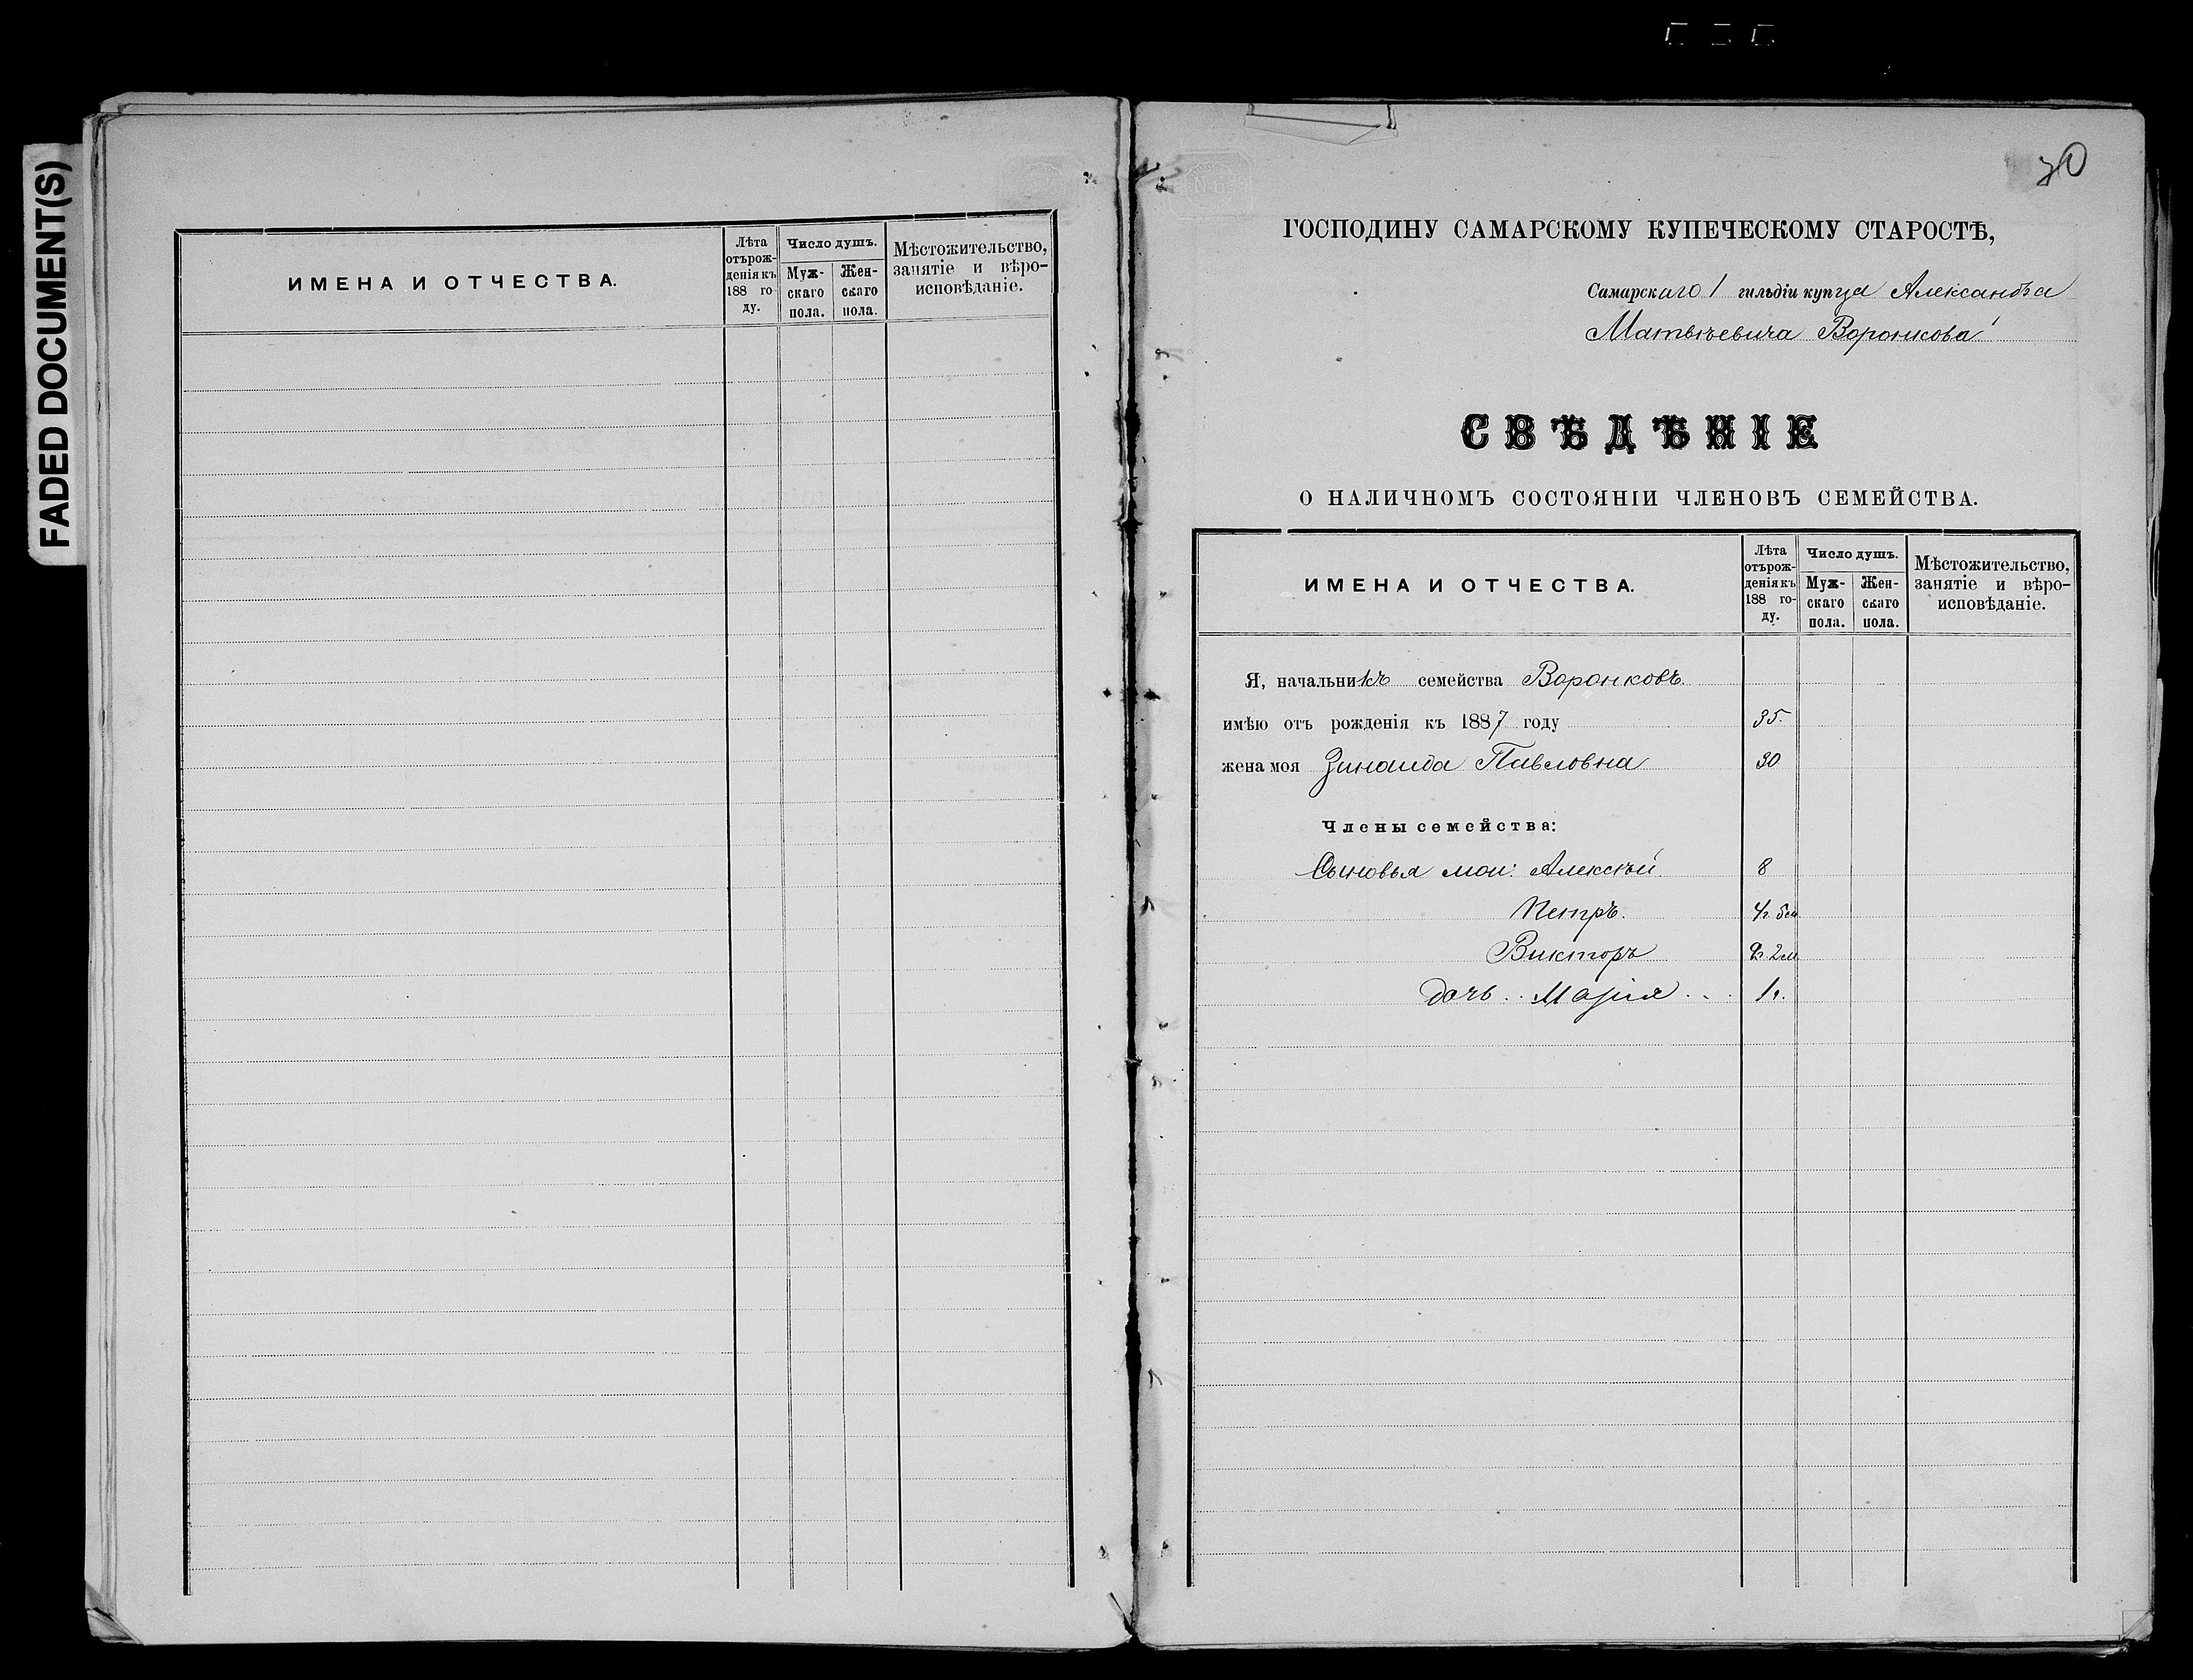 FADED DOCUMENT(S)
ИМЕНА И ОТЧЕСТВА.
Лѣта
отърож-
денія къ
188 го-
ду.
Число душъ.
Муж-
скаго
пола.
Жен-
скаго
пола.
Мѣстожительство,
занятіе и вѣро-
исповѣданіе.
30
ГОСПОДИНУ САМАРСКОМУ КУПЕЧЕСКОМУ СТАРОСТѢ,
Самарскаго 1 гильдіи купца Александра
Матвѣевича Воронкова
СВѢДѢНІЕ
О НАЛИЧНОМЪ СОСТОЯНІИ ЧЛЕНОВЪ СЕМЕЙСТВА.
ИМЕНА И ОТЧЕСТВА.
Лѣта
отърож-
денія къ
188 го-
ду.
Число душъ.
Муж-
скаго
пола.
Жен-
скаго
пола.
Мѣстожительство,
занятіе и вѣро-
исповѣданіе.
Я, начальникъ семейства Воронковъ.
имѣю отъ рожденія къ 1887 году 35.
жена моя Зинаида Павловна 30
Члены семейства:
Сыновья мои: Алексѣй. 8
Петръ. 4г. 5м
Викторъ 2м
дочь Марія 1г.